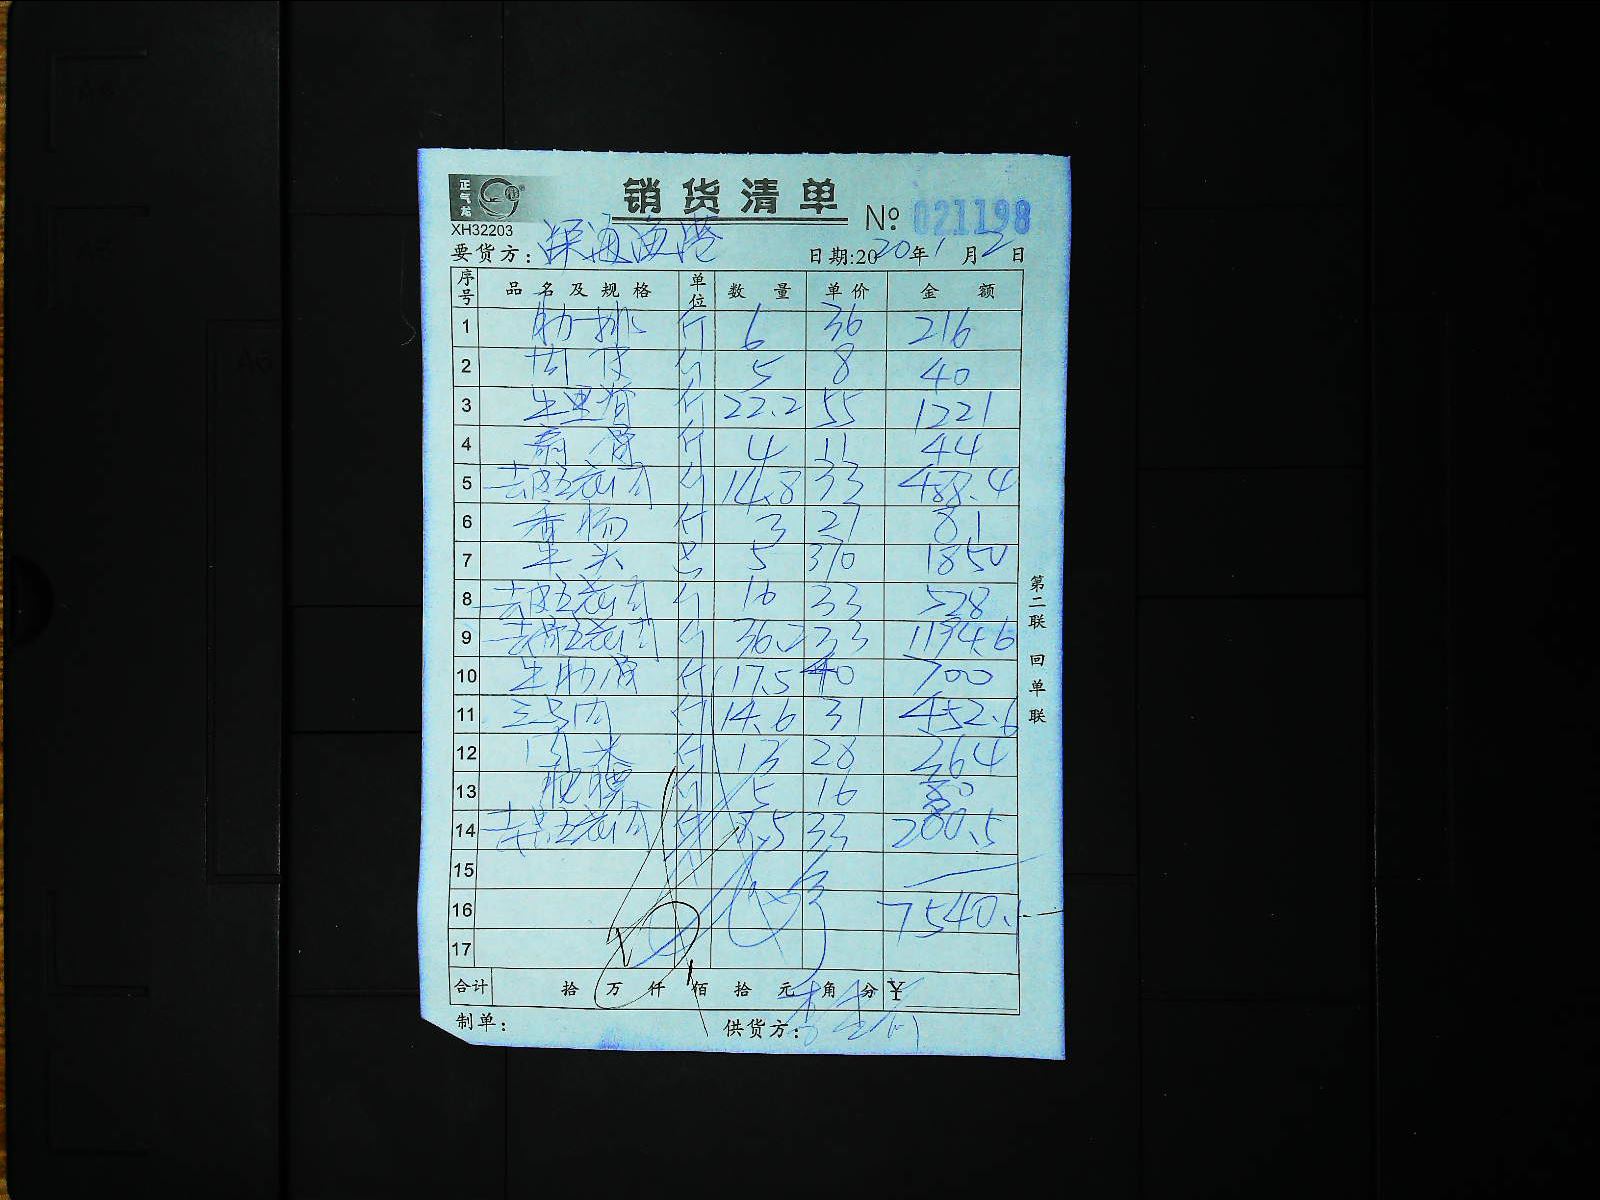 正气龙
销货清单
XH32203
№: 021198
要货方: 深海渔港 日期:2020年1月2日
序号 品名及规格 单位 数量 单价 金额
1 肋排 斤 6 36 216
2 肉皮 斤 5 8 40
3 生里脊 斤 22.2 55 1221
4 斤 4 11 44
5 去皮五花肉 斤 14.8 33 488.4
6 香肠 斤 3 27 81
7 羊头 5 370 1850
8 去皮五花肉 斤 16 33 528
9 去骨五花肉 斤 36.2 33 1194.6
10 生肋 斤 17.5 40 700
11 三号肉 斤 14.6 31 452.6
12 斤 13 28 364
13 斤 5 16 80
14 去骨五花肉 斤 8.5 33 280.5
15
16 7540.1
17
合计 拾 万 仟 佰 拾 元 角 分 ¥
制单: 供货方:
第二联 回单联